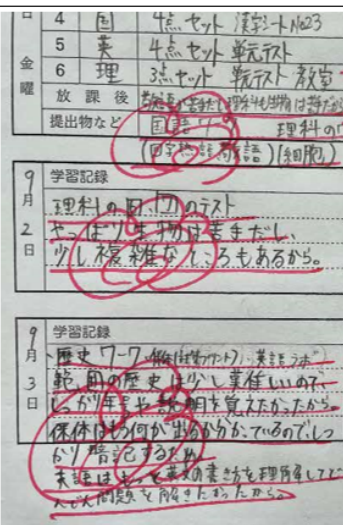 4 国 4点セット 漢字シートNo23
5 英 4点セット 単元テスト
金 6 理 3点セット 単元テスト 教室
曜 放課後
提出物など 国語ワーク 理科の
(四字熟語 敬語)(細胞)
9月2日 学習記録
理科の のテスト
やっぱり生物は苦手だし、
少し複雑なところもあるから。
9月3日 学習記録
・歴史ワーク ・英語ラボ
範囲の歴史は少し 難しいので、
しっかり年号や説明を覚えたかったから。
保体はもう何が出るか分かっているので、しっ
かり暗記するため
英語はもっと英文の書き方を理解してど
んどん問題を解きたかったから。